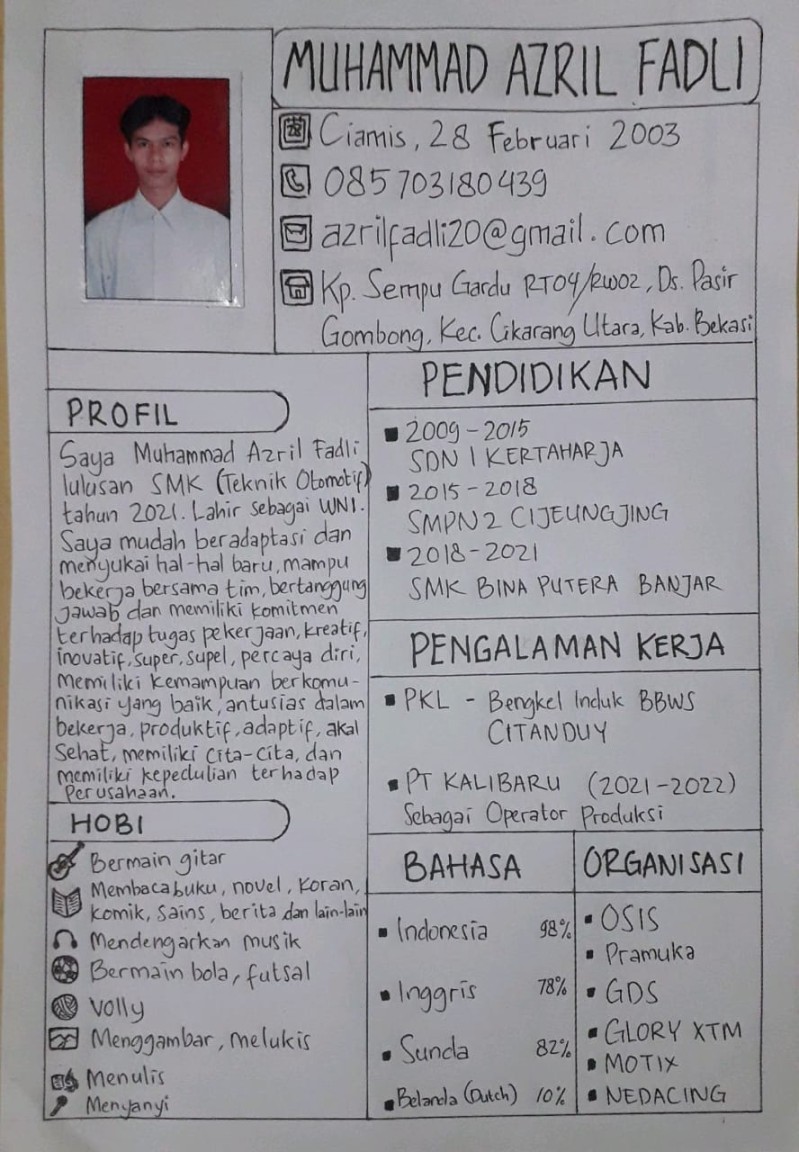 MUHAMMAD AZRIL FADLI
Ciamis, 28 Februari 2003
085703180439
azrilfadli20@gmail.com
Kp. Sempu Gardu RT04/RW02, Ds. Pasir
Gombong, Kec. Cikarang Utara, Kab. Bekasi
PROFIL
Saya Muhammad Azril Fadli
lulusan SMK (Teknik Otomotif)
tahun 2021. Lahir sebagai WNI.
Saya mudah beradaptasi dan
menyukai hal-hal baru, mampu
bekerja bersama tim, bertanggung
jawab dan memiliki komitmen
terhadap tugas pekerjaan, kreatif,
inovatif, super, supel, percaya diri,
memiliki kemampuan berkomu-
nikasi yang baik, antusias dalam
bekerja, produktif, adaptif, akal
sehat, memiliki cita-cita, dan
memiliki kepedulian terhadap
perusahaan.
HOBI
Bermain gitar
Membaca buku, novel, koran,
komik, sains, berita dan lain-lain
Mendengarkan musik
Bermain bola, futsal
Volly
Menggambar, melukis
Menulis
Menyanyi
PENDIDIKAN
2009-2015
SDN 1 KERTAHARJA
2015-2018
SMPN 2 CIJEUNGJING
2018-2021
SMK BINA PUTERA BANJAR
PENGALAMAN KERJA
PKL - Bengkel Induk BBWS
CITANDUY
PT KALIBARU (2021-2022)
Sebagai Operator Produksi
BAHASA
Indonesia 98%
Inggris 78%
Sunda 82%
Belanda (Dutch) 10%
ORGANISASI
OSIS
Pramuka
GDS
GLORY XTM
MOTIX
NEDACING